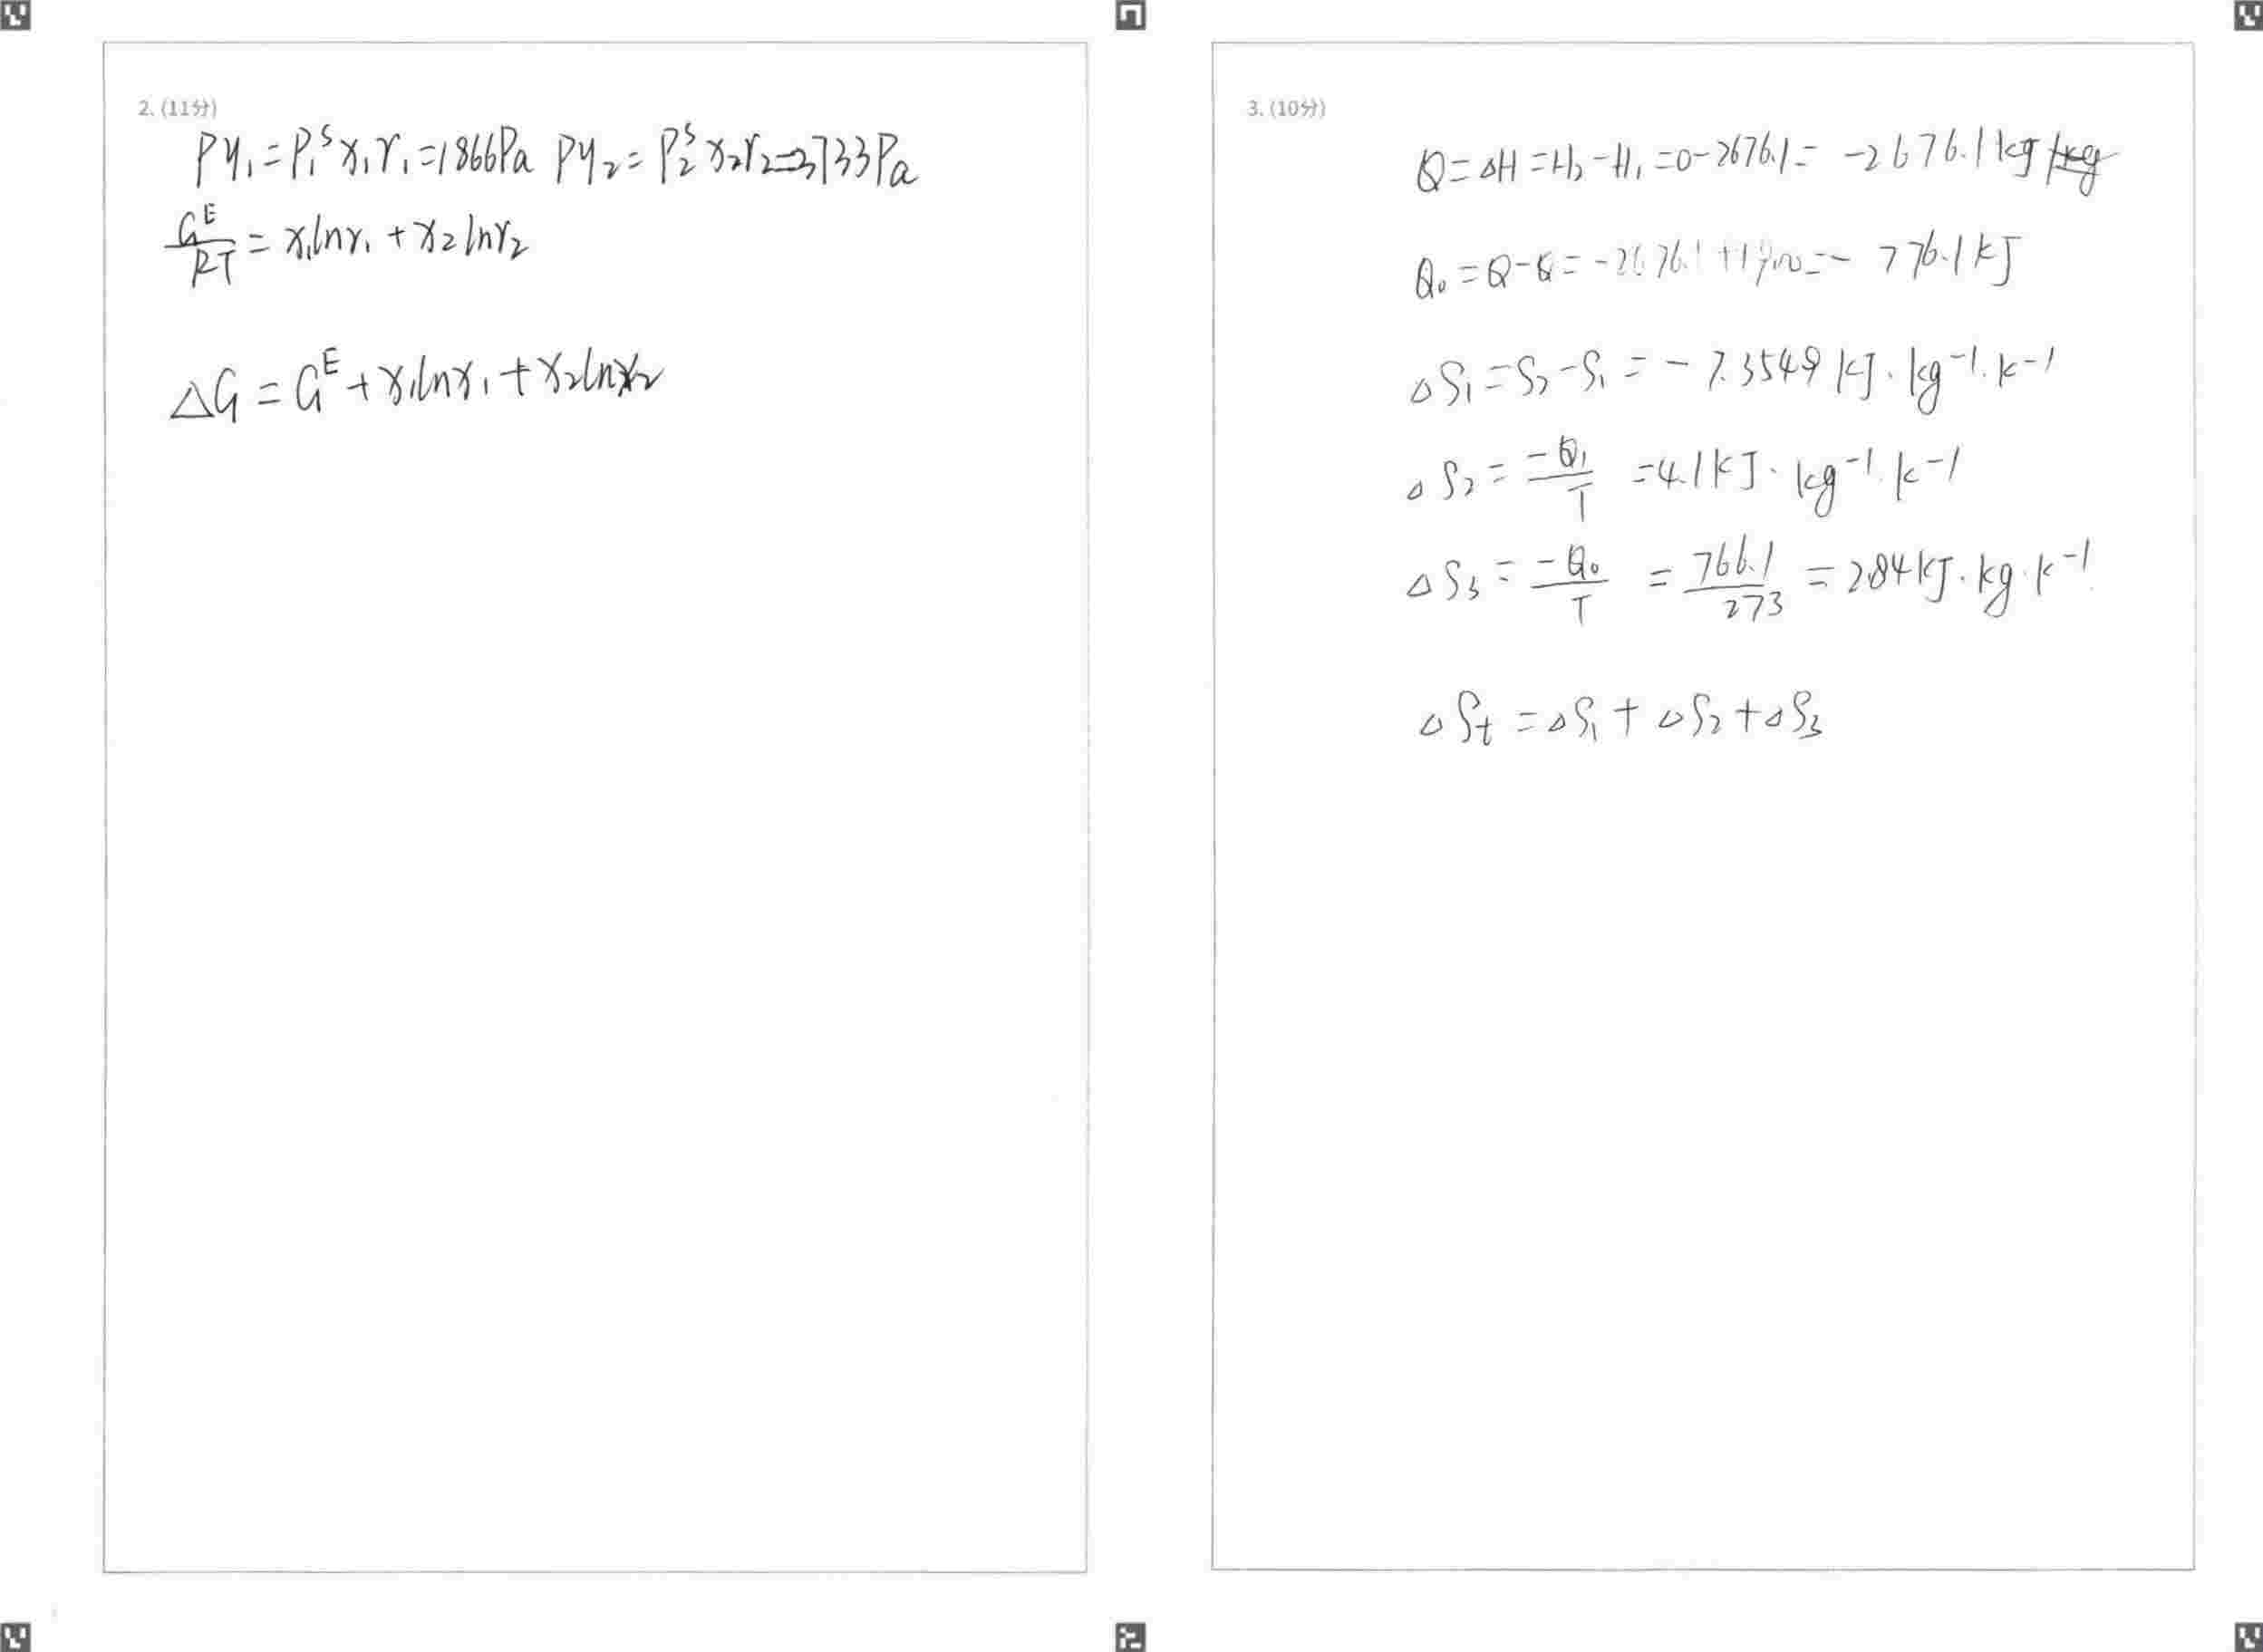 2. (11分)
PY₁=P₁ˢx₁γ₁=1866Pa PY₂=P₂ˢx₂γ₂=3733Pa
Gᴱ/RT = x₁lnγ₁ + x₂lnγ₂
△G = Gᴱ+x₁lnx₁+x₂lnx₂
3. (10分)
Q=△H=H₂-H₁=0-2676.1= -2676.1kJ
Q₀=Q-Q=-2676.1+1900=-776.1kJ
△S₁=S₂-S₁=-7.3549kJ·kg⁻¹·k⁻¹
△S₂=-Q₁/T=4.1kJ·kg⁻¹·k⁻¹
△S₃=-Q₀/T=766.1/273=2.84kJ·kg·k⁻¹
△St=△S₁+△S₂+△S₃